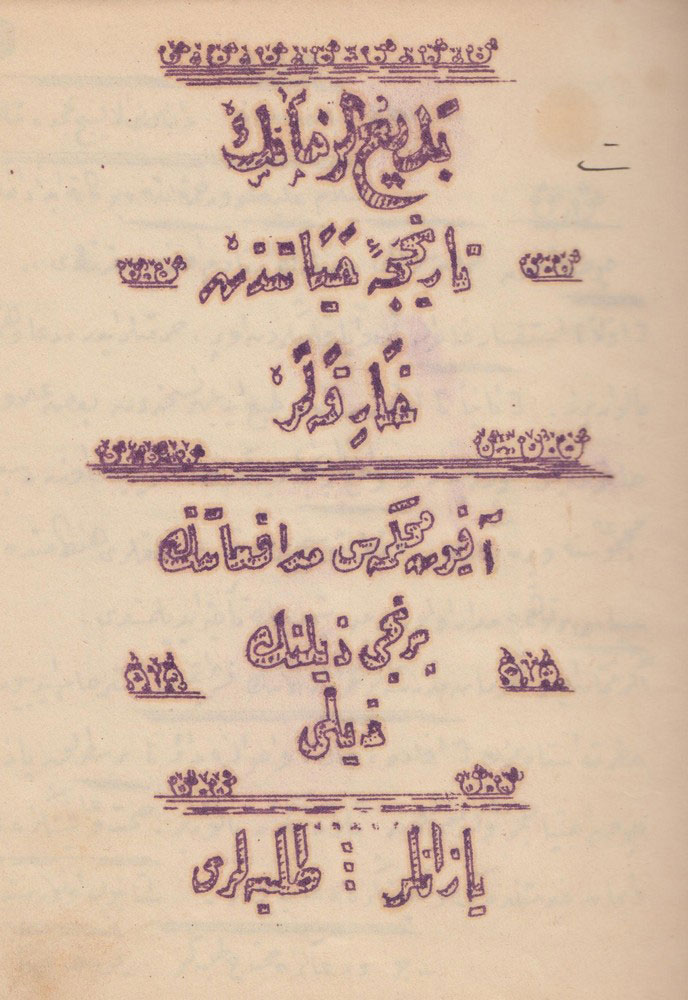 بديع الزمانك
تاريخچۀ حياتندن
خارقه لر
آفيون محكمه سى مدافعاتنك
برنجى ذيلنك
ذيلى
يازانلر : طلبه لرى